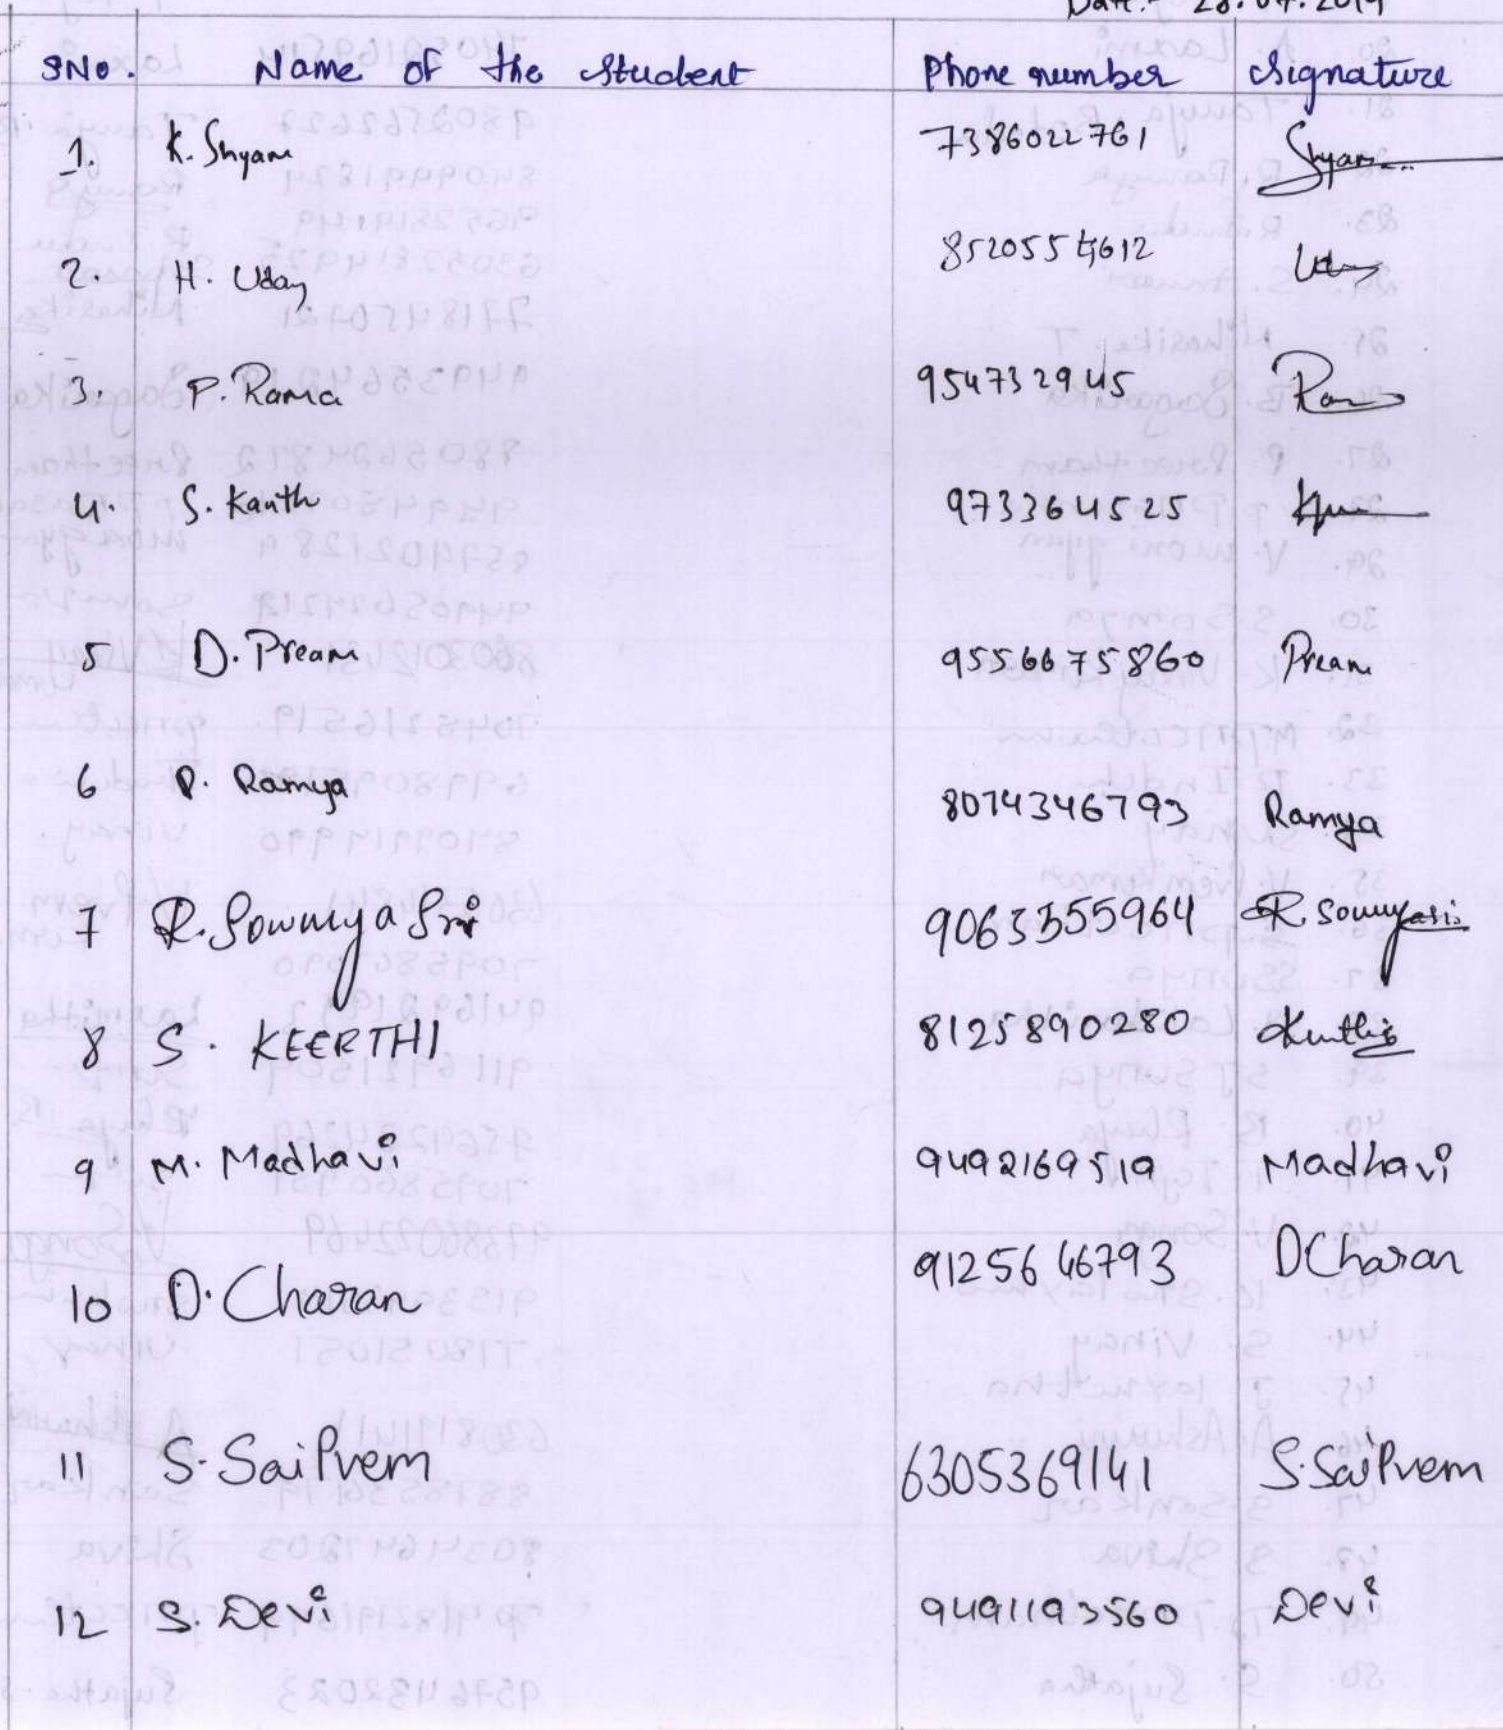 Date:- 28.04.2019
SNo. Name of the Student Phone number Signature
1. K. Shyam 7386022761 Shyam
2. H. Uday 8520554612 Uday
3. P. Rama 9547329445 Ram
4. S. Kanth 9733364525
5 D. Pream 9556675860 Pream
6 P. Ramya 8074346793 Ramya
7 R. Sowmya Sri 9063355964 R sowmyasri
8 S. KEERTHI 8125890280 Keerthi
9 M. Madhavi 9492169519 Madhavi
10 D. Charan 9125646793 D Charan
11 S. Sai Prem 6305369141 S. Sai Prem
12 S. Devi 9491193560 Devi